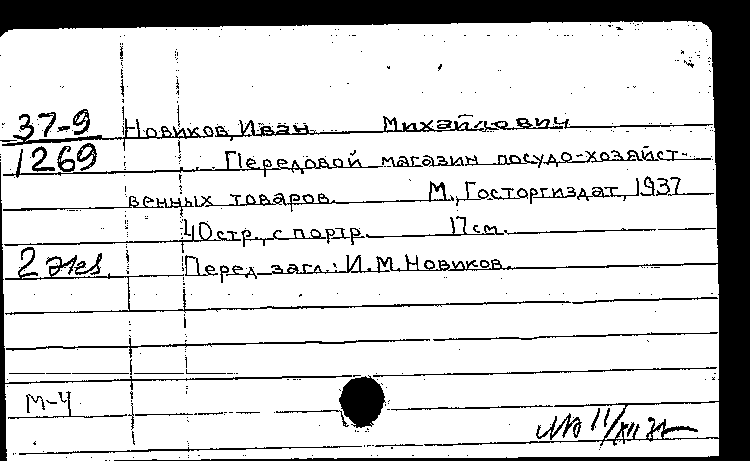 37-9 Новиков, Иван Михайлович
1269 Передовой магазин посудо-хозяйст-
венных товаров. М., Госторгиздат, 1937
40стр., с портр. 17см.
2 экз. Перед загл.: И.М.Новиков.
М-4
11/XII